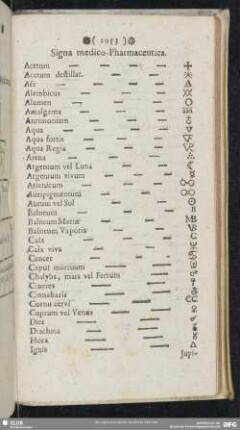 ( 1053 )
Signa medico-Pharmaceutica.
Acetum
Acetum destillat.
Aër
Alembicus
Alumen
Amalgama
Antimonium
Aqua
Aqua fortis
Aqua Regia
Arena
Argentum vel Luna
Argentum vivum
Arsenicum
Auripigmentum
Aurum vel Sol
Balneum
Balneum Mariæ
Balneum Vaporis
Calx
Calx viva
Cancer
Caput mortuum
Chalybs, mars vel Ferrum
Cineres
Cinnabaris
Cornu cervi
Cuprum vel Venus
Dies
Drachma
Hora
Ignis
Jupi-
SLUB
DFG